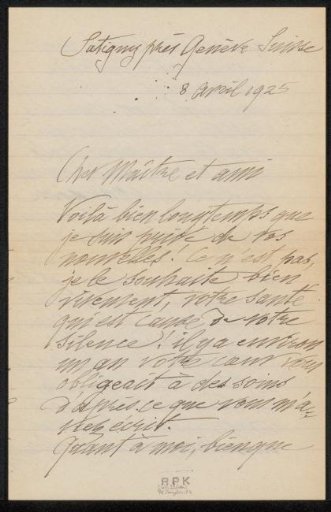 Satigny près Genève Suisse
8 avril 1925
Cher Maître et ami
Voilà bien longtemps que
je suis privé de vos
nouvelles! Ce n'est pas,
je le souhaite bien
vivement, votre santé
qui est cause de votre
silence? il y a environ
un an votre cœur vous
obligeait à des soins
d'après ce que vous m'a-
viez écrit.
Quant à moi, bien que
R.P.K